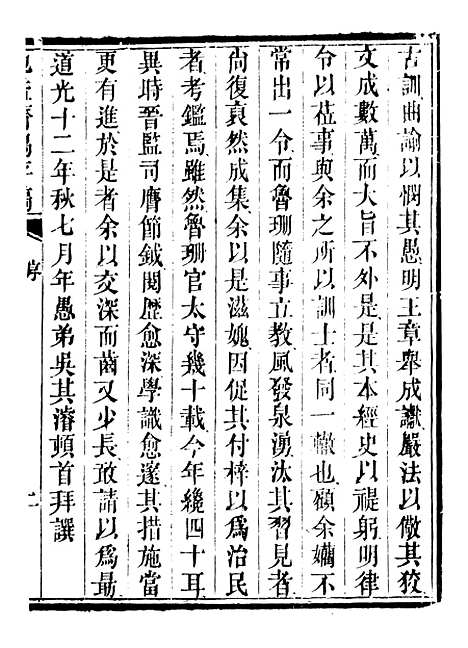 古訓曲諭以憫其愚明王章舉成讞嚴法以儆其狡
文成數萬而大旨不外是是其本經史以禔躬明律
令以莅事與余之所以訓士者同一轍也顧余嬾不
常出一令而魯珊隨事立教風發泉湧汰其習見者
尚復裒然成集余以是滋媿因促其付梓以爲治民
者考鑑焉雖然魯珊官太守幾十載今年纔四十耳
異時晉監司膺節鉞閱歷愈深學識愈邃其措施當
更有進於是者余以交深而齒又少長敢請以爲勗
道光十二年秋七月年愚弟吳其濬頓首拜譔
序
二